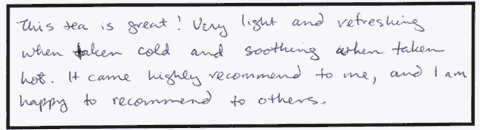 This tea is great! Very light and refreshing
when taken cold and soothing when taken
hot. It came highly recommend to me, and I am
happy to recommend to others.